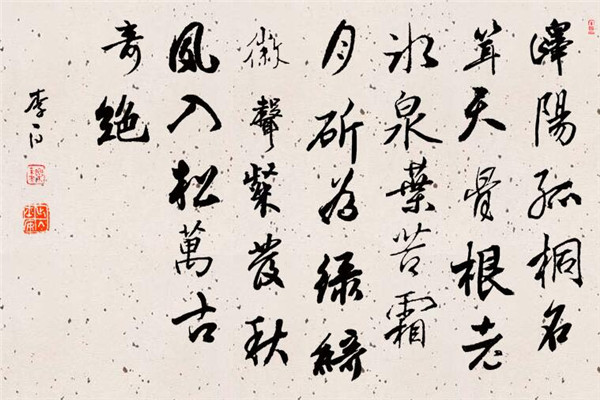 嶧陽孤桐名
耸天骨根老
冰泉葉苦霜
月斫为绿綺
徽聲粲發秋
風入松萬古
奇絶
李白